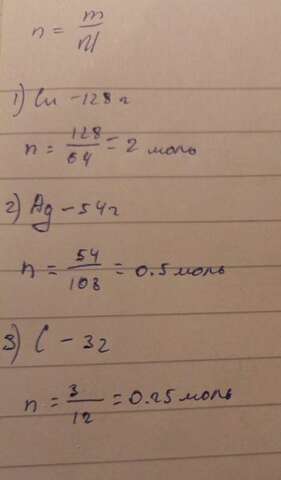 n = m/M
1) Cu - 128 г
n = 128/64 = 2 моль
2) Ag - 54 г
n = 54/108 = 0.5 моль
3) C - 3 г
n = 3/12 = 0.25 моль